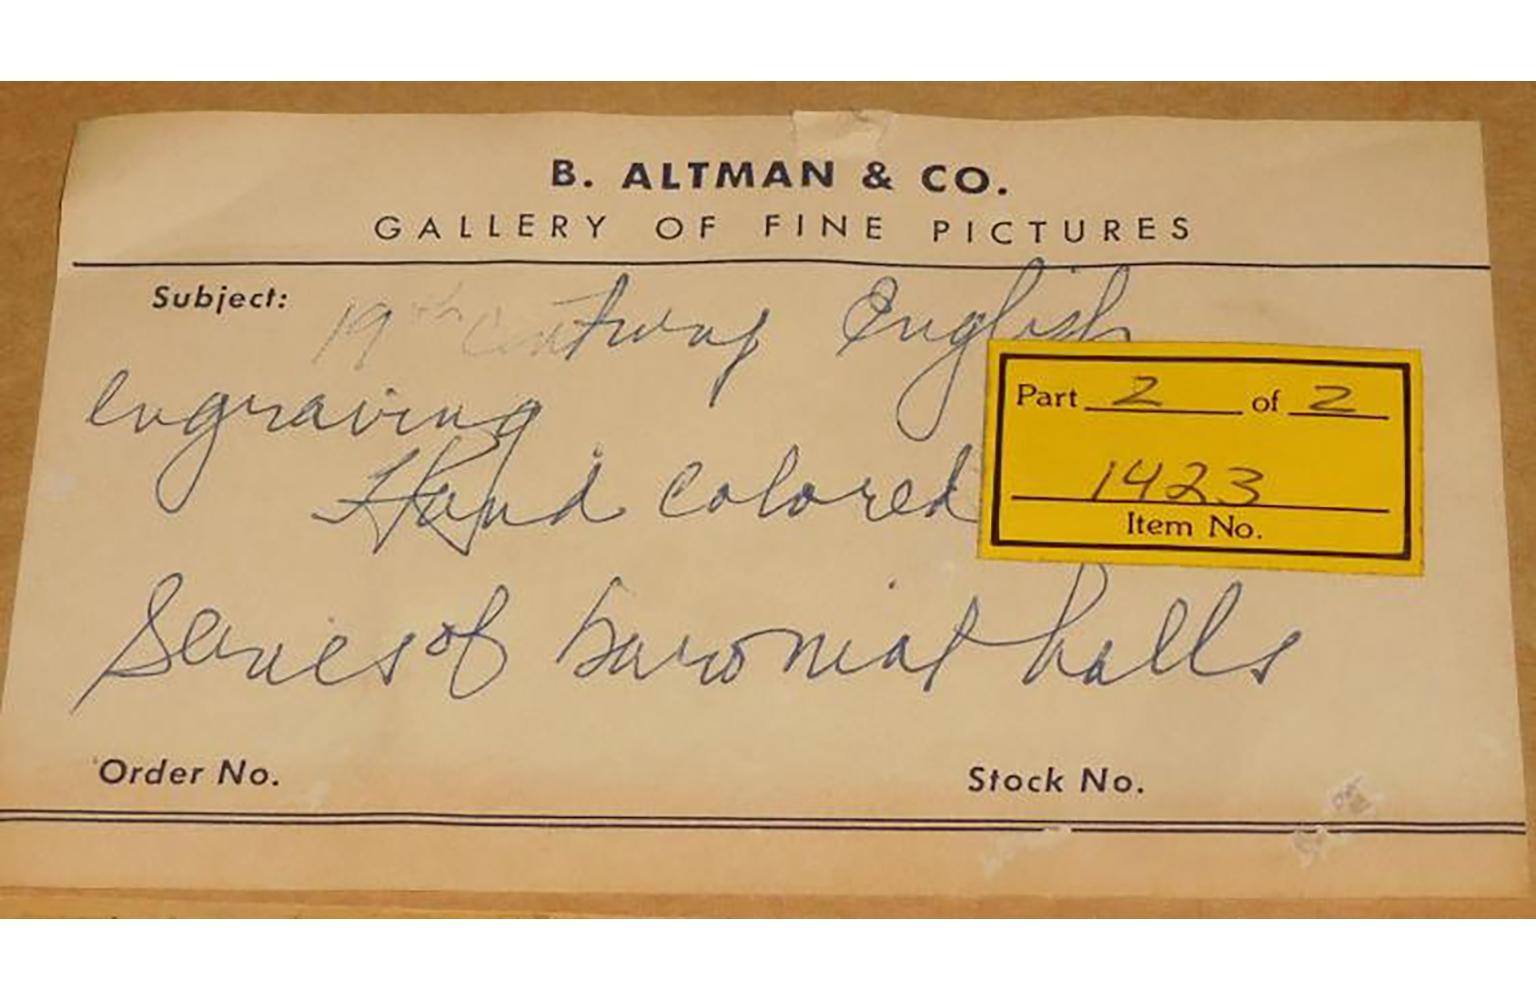 B. ALTMAN & CO.
GALLERY OF FINE PICTURES
Subject: 19th Century English
engraving
Hand colored
Series of baronial halls
Part 2 of 2
1423
Item No.
Order No. Stock No.